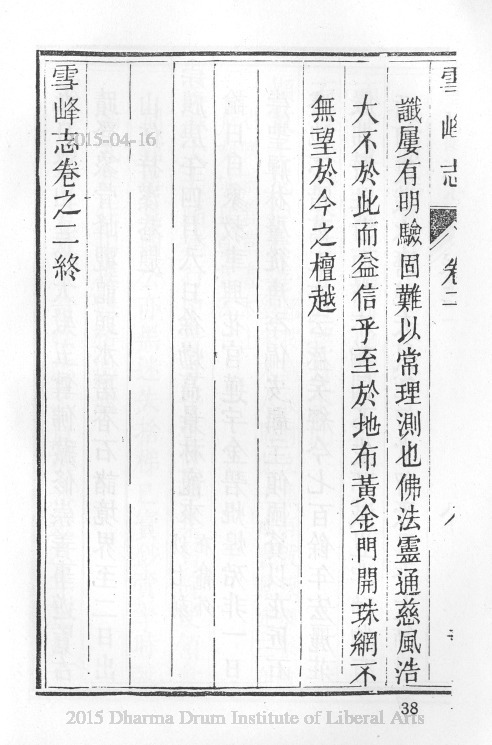 雪峰志 卷二 八
讖屢有明驗固難以常理測也佛法靈通慈風浩
大不於此而益信乎至於地布黃金門開珠網不
無望於今之檀越
雪峰志卷之二終
2015-04-16
38
2015 Dharma Drum Institute of Liberal Arts